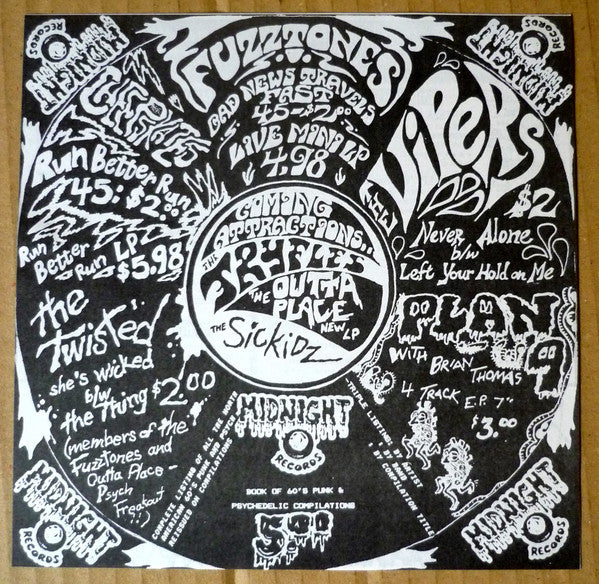 MIDNIGHT
RECORDS
FUZZTONES
BAD NEWS TRAVELS
FAST
45-$2.00
LIVE MINI LP
4.98
MIDNIGHT
RECORDS
Run Better Run
45: $2.00
Run
Better
Run LP
$5.98
THE
VIPERS
$2
Never Alone
b/w
Left Your Hold on Me
COMING
ATTRACTIONS..
THE
TRYFLES
THE OUTTA
PLACE
NEW LP
THE SICKIDZ
the
Twisted
she's wicked
b/w
the Thing $2.00
(members of the
Fuzztones and
Outta Place -
Psych
Freakout!!)
PLAN
9
WITH BRIAN
THOMAS
4 TRACK E.P. 7"
$3.00
COMPLETE LISTING OF ALL THE NORTH
AMERICAN 60'S PUNK AND PSYCH
REISSUED OR COMPILATIONS
MIDNIGHT
RECORDS
TRIPLE LISTINGS: BY ARTIST
BY BAND
BY COMPILATION TITLE
BOOK OF 60'S PUNK &
PSYCHEDELIC COMPILATIONS
5.00
MIDNIGHT
RECORDS
MIDNIGHT
RECORDS